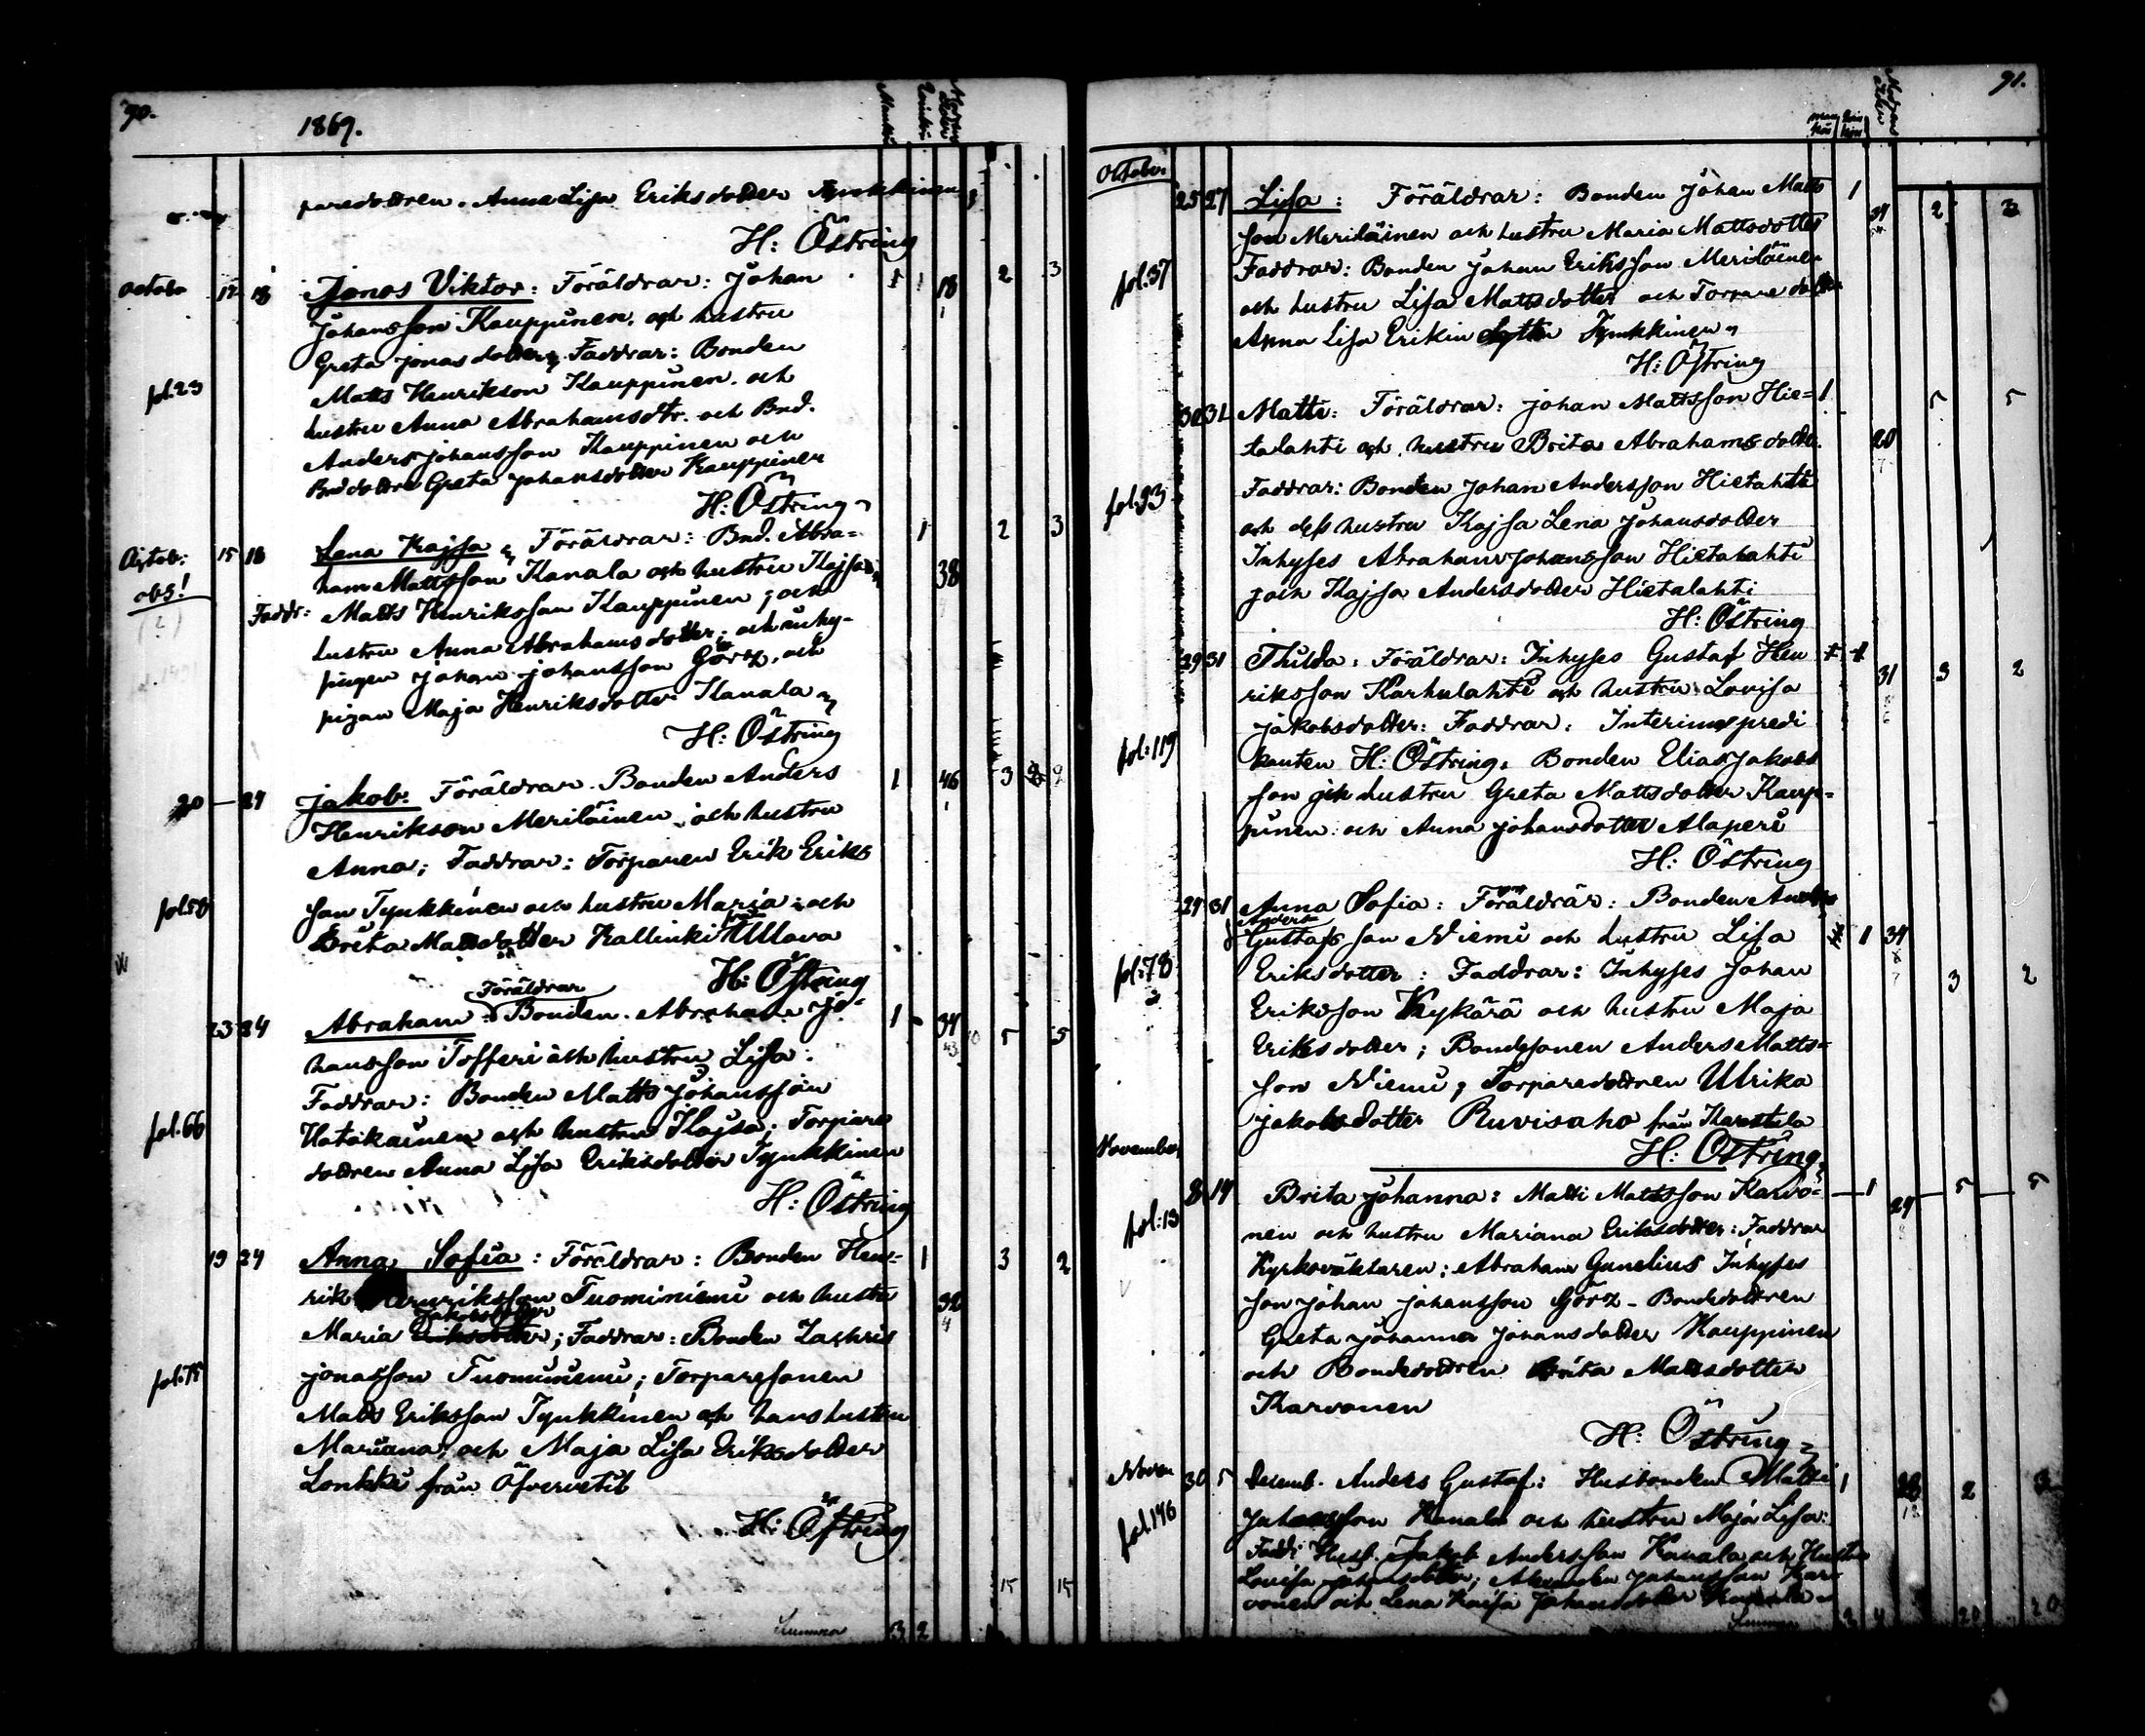 90.
1869.
paredottren. Anna Lisa Eriksdotter Tynkkinen
H: Östring
October 12 18 Jonas Viktor: Föräldrar: Johan 18 2 3
Johansson Kauppinen, och hustru
Greta Jonasdotter, Faddrar: Bonden
fol. 23 Matts Henrikson Kauppinen och
hustru Anna Abrahamsdtr. och Bnd.
Anders Johansson Kauppinen och
Greta Johansdotter Kauppinen
H: Östring
15 18 Lena Kajsa, Föräldrar: Bnd. Abra= 1 2 3
obs! ham Mattsson Kanala och hustru Kajsa 38
Faddr: Matts Henriksson Kauppinen; och
hustru Anna Abrahamsdotter; och inhy-
singen Johan Johansson Görz, och
pigan Maja Henriksdotter Kanala
H: Östring
20 — 24 Jakob: Föräldrar. Bonden Anders 1 46 3 9
Henrikson Meriläinen, och hustru
Anna; Faddrar: Torparen Erik Eriks
fol. 58 son Tynkkinen och hustru Maria; och
Brita Mattsdotter Kallinki från Ullava
H: Östring
Föräldrar
23 24 Abraham: Bonden. Abraham Jo- 1 34 5 5
hansson Tofferi och hustru Lisa:
Faddrar: Bonden Matts Johansson
fol. 66 och hustru Kajsa; Torpare
dottren Anna Lisa Eriksdotter Tynkkinen
H: Östring
19 24 Anna Sofia: Föräldrar: Bonden Hen- 1 3 2
rik Henriksson Tuominiemi och hustru 32
Jakobsdotter
Maria Eriksdotter; Faddrar: Bonden Zachris
fol. 75 Jonasson Tuominiemi; Torparesonen
Matts Eriksson Tynkkinen och hans hustru
Mariana; och Maja Lisa Eriksdotter
Lonkki från Öfvervetil
H: Östring
15 15
Summa 3 2
91.
October
25 27 Lisa: Föräldrar: Bonden Johan Matts 1
son Meriläinen och hustru Maria Mattsdotter 2
Faddrar: Bonden Johan Eriksson Meriläinen
fol. 37 och hustru Lisa Mattsdotter och Torparedotter
Anna Lisa Erikin Tynkkinen
H: Östring
30 31 Matti: Föräldrar: Johan Mattsson Hie= 1 5 5
talahti och hustru Brita Abrahamsdotter. 20
fol. 93 Faddrar: Bonden Johan Andersson Hietalahti
och dess hustru Kajsa Lena Johansdotter
Inhyses Abraham Johansson Hietalahti
och Kajsa Andersdotter Hietalahti
H: Östring
29 31 Thilda: Föräldrar: Inhyses Gustaf Hen
riksson Karhulahti och hustru Lovisa 31 3 2
Jakobsdotter: Faddrar: Interimspredi
fol: 119 kanten H: Östring, Bonden Elias Jakobs
son och hustru Greta Mattsdotter Kaup=
pinen och Anna Johansdotter Alaperi
H: Östring
29 31 Anna Sofia: Föräldrar: Bonden Anders
Anders
Gustafsson Niemi och hustru Lisa 1 34
fol: 78 Eriksdotter: Faddrar: Inhyses Johan 3 2
Eriksson Kykärä och hustru Maja
Eriksdotter; Bondesonen Anders Matts=
son Niemi; Torparedottren Ulrika
Jakobsdotter Ruvisaho från Karstula
H: Östring
November
8 14 Brita Johanna: Matti Mattsson Karvo- 1 5 5
fol: 13 nen och hustru Mariana Eriksdotter: Faddrar 29
Kyrkoväktaren: Abraham Gunelius Inhyses
son Johan Johansson Görz - Bondedottren
Greta Johanna Johansdotter Kauppinen
och Bondedottren Brita Mattsdotter
Karvonen
H: Östring
Novem 30 5 Decemb. Anders Gustaf: Husbonden Matti 1 28 2 3
fol. 146 Johansson Kanala och hustru Maja Lisa:
Fadd: Husb. Jakob Andersson Kanala och Hustru
Lovisa Johansdotter; Alexander Johansson Kar-
vonen och Lena Kaisa Johansdotter
Summa 20 20